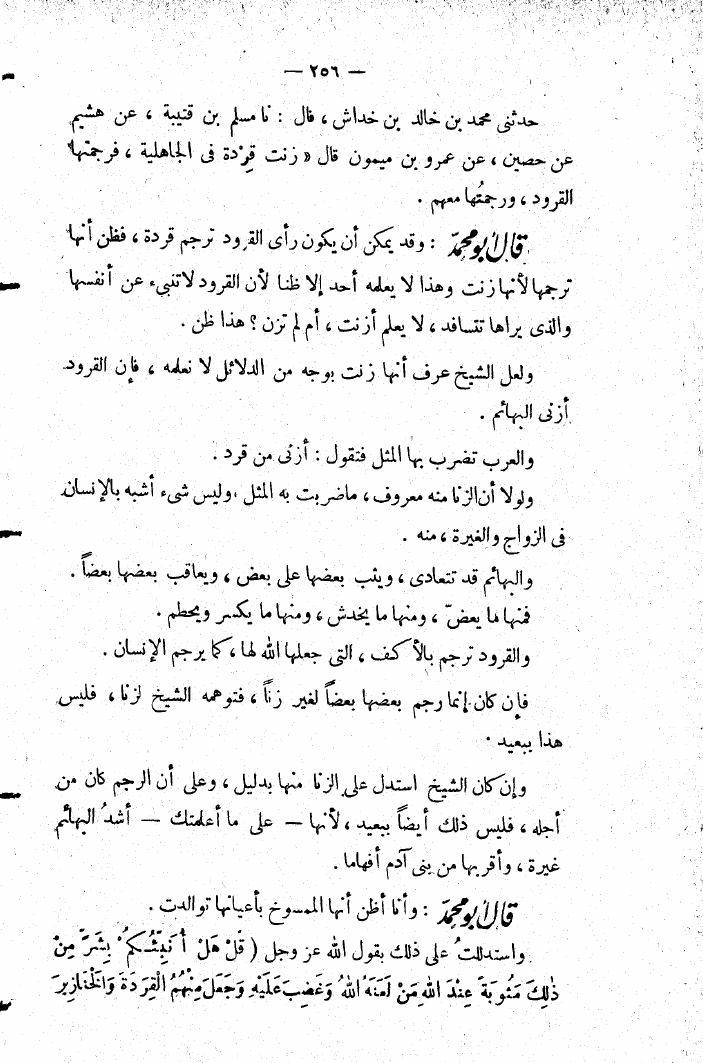 — ٢٥٦ —
حدثنى محمد بن خالد بن خداش ، قال : نا مسلم بن قتيبة ، عن هشيم
عن حصين ، عن عمرو بن ميمون قال « زنت قِرْدة فى الجاهلية ، فرجمتها
القرود ، ورجمتُها معهم .
قال أبو محمّد : وقد يمكن أن يكون رأى القرود ترجم قردة ، فظن أنها
ترجمها لأنها زنت وهذا لا يعلمه أحد إلا ظنا لأن القرود لاتنبىء عن أنفسها
والذى يراها تتسافد ، لا يعلم أزنت ، أم لم تزن ؟ هذا ظن .
ولعل الشيخ عرف أنها زنت بوجه من الدلائل لا نعلمه ، فإن القرود
أزنى البهائم .
والعرب تضرب بها المثل فتقول : أزنى من قرد .
ولولا أن الزنا منه معروف ، ماضربت به المثل ، وليس شىء أشبه بالإنسان
فى الزواج والغيرة ، منه .
والبهائم قد تتعادى ، ويثب بعضها على بعض ، ويعاقب بعضها بعضاً .
فمنها ما يعضّ ، ومنها ما يخدش ، ومنها ما يكسر ويحطم .
والقرود ترجم بالأكف ، التى جعلها الله لها ، كما يرجم الإنسان .
فإن كان إنما رجم بعضها بعضاً لغير زناً ، فتوهمه الشيخ لزنا ، فليس
هذا ببعيد .
وإن كان الشيخ استدل على الزنا منها بدليل ، وعلى أن الرجم كان من
أجله ، فليس ذلك أيضاً ببعيد ، لأنها — على ما أعلمتك — أشدُ البهائم
غيرة ، وأقربها من بنى آدم أفهاما .
قال أبو محمّد : وأنا أظن أنها الممسوخ بأعيانها توالدت .
واستدللتُ على ذلك بقول الله عز وجل ( قُلْ هَلْ أُنَبِّئُكُمْ بِشَرٍّ مِنْ
ذٰلِكَ مَثُوبَةً عِنْدَ اللهِ مَنْ لَعَنَهُ اللهُ وَغَضِبَ عَلَيْهِ وَجَعَلَ مِنْهُمُ الْقِرَدَةَ وَالْخَنَازِيرَ